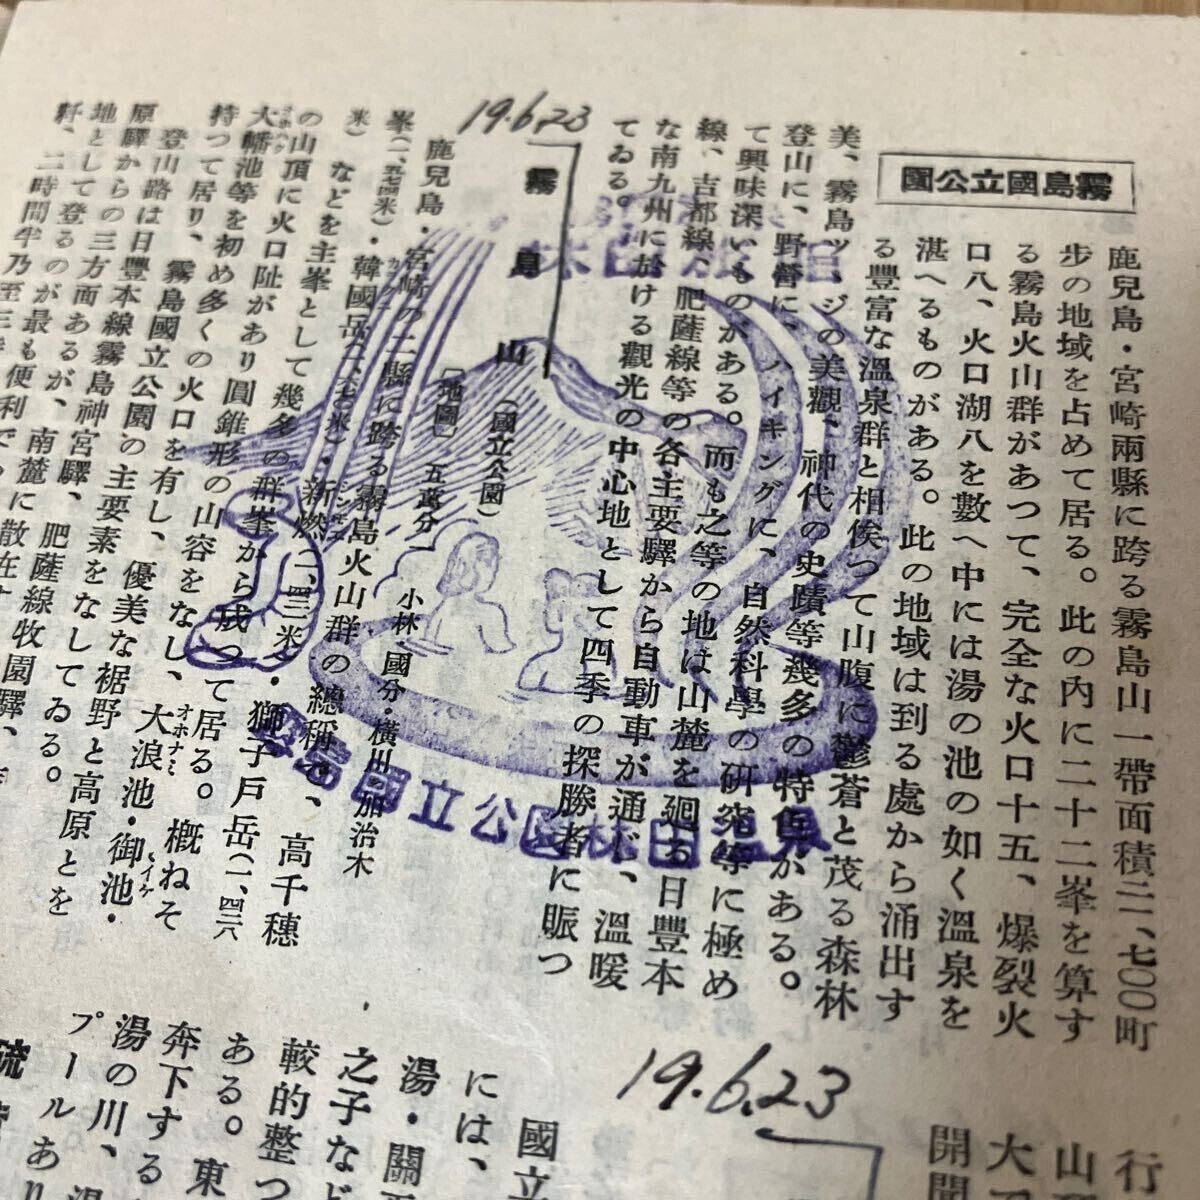 霧島國立公園
鹿兒島・宮崎兩縣に跨る霧島山一帶面積二一、七〇〇町
步の地域を占めて居る。此の内に二十二峯を算す
る霧島火山群があつて、完全な火口十五、爆裂火
口八、火口湖八を數へ中には湯の池の如く溫泉を
湛へるものがある。此の地域は到る處から涌出す
る豐富な溫泉群と相俟つて山腹に鬱蒼と茂る森林
美、霧島ツヽジの美觀、神代の史蹟等幾多の特色がある。
登山に、野營に、ハイキングに、自然科學の研究等に極め
て興味深いものがある。而も之等の地は山麓を廻る日豐本
線、吉都線、肥薩線等の各主要驛から自動車が通じ、溫暖
な南九州に於ける觀光の中心地として四季の探勝者に賑つ
てゐる。
19.6.23
霧島山(國立公園)
〔地圖〕五萬分 小林・國分・橫川・加治木
鹿兒島・宮崎の二縣に跨る霧島火山群の總稱で、高千穗
峯(一、五七四米)・韓國岳(一、七〇〇米)・新燃
獅子戸岳(一、四二八
米)などを主峯として幾多の群峯から成つて居る。槪ねそ
の山頂に火口阯があり圓錐形の山容をなし、大浪池・御池・
大幡池等を初め多くの火口を有し、優美な裾野と高原とを
持つて居り、霧島國立公園の主要素をなしてゐる。
登山路は日豐本線霧島神宮驛、肥薩線牧園驛、
原驛からの三方面あるが、南麓に散在す
地として登るのが最も便利で
粁、二時間半乃至三
林田旅館
霧島國立公園林田溫泉
19.6.23
國立
には、
湯・關平
之子など
較的整つ
ある。東
奔下する
湯の川、湯
プールあり
硫黃
行
山
大
開